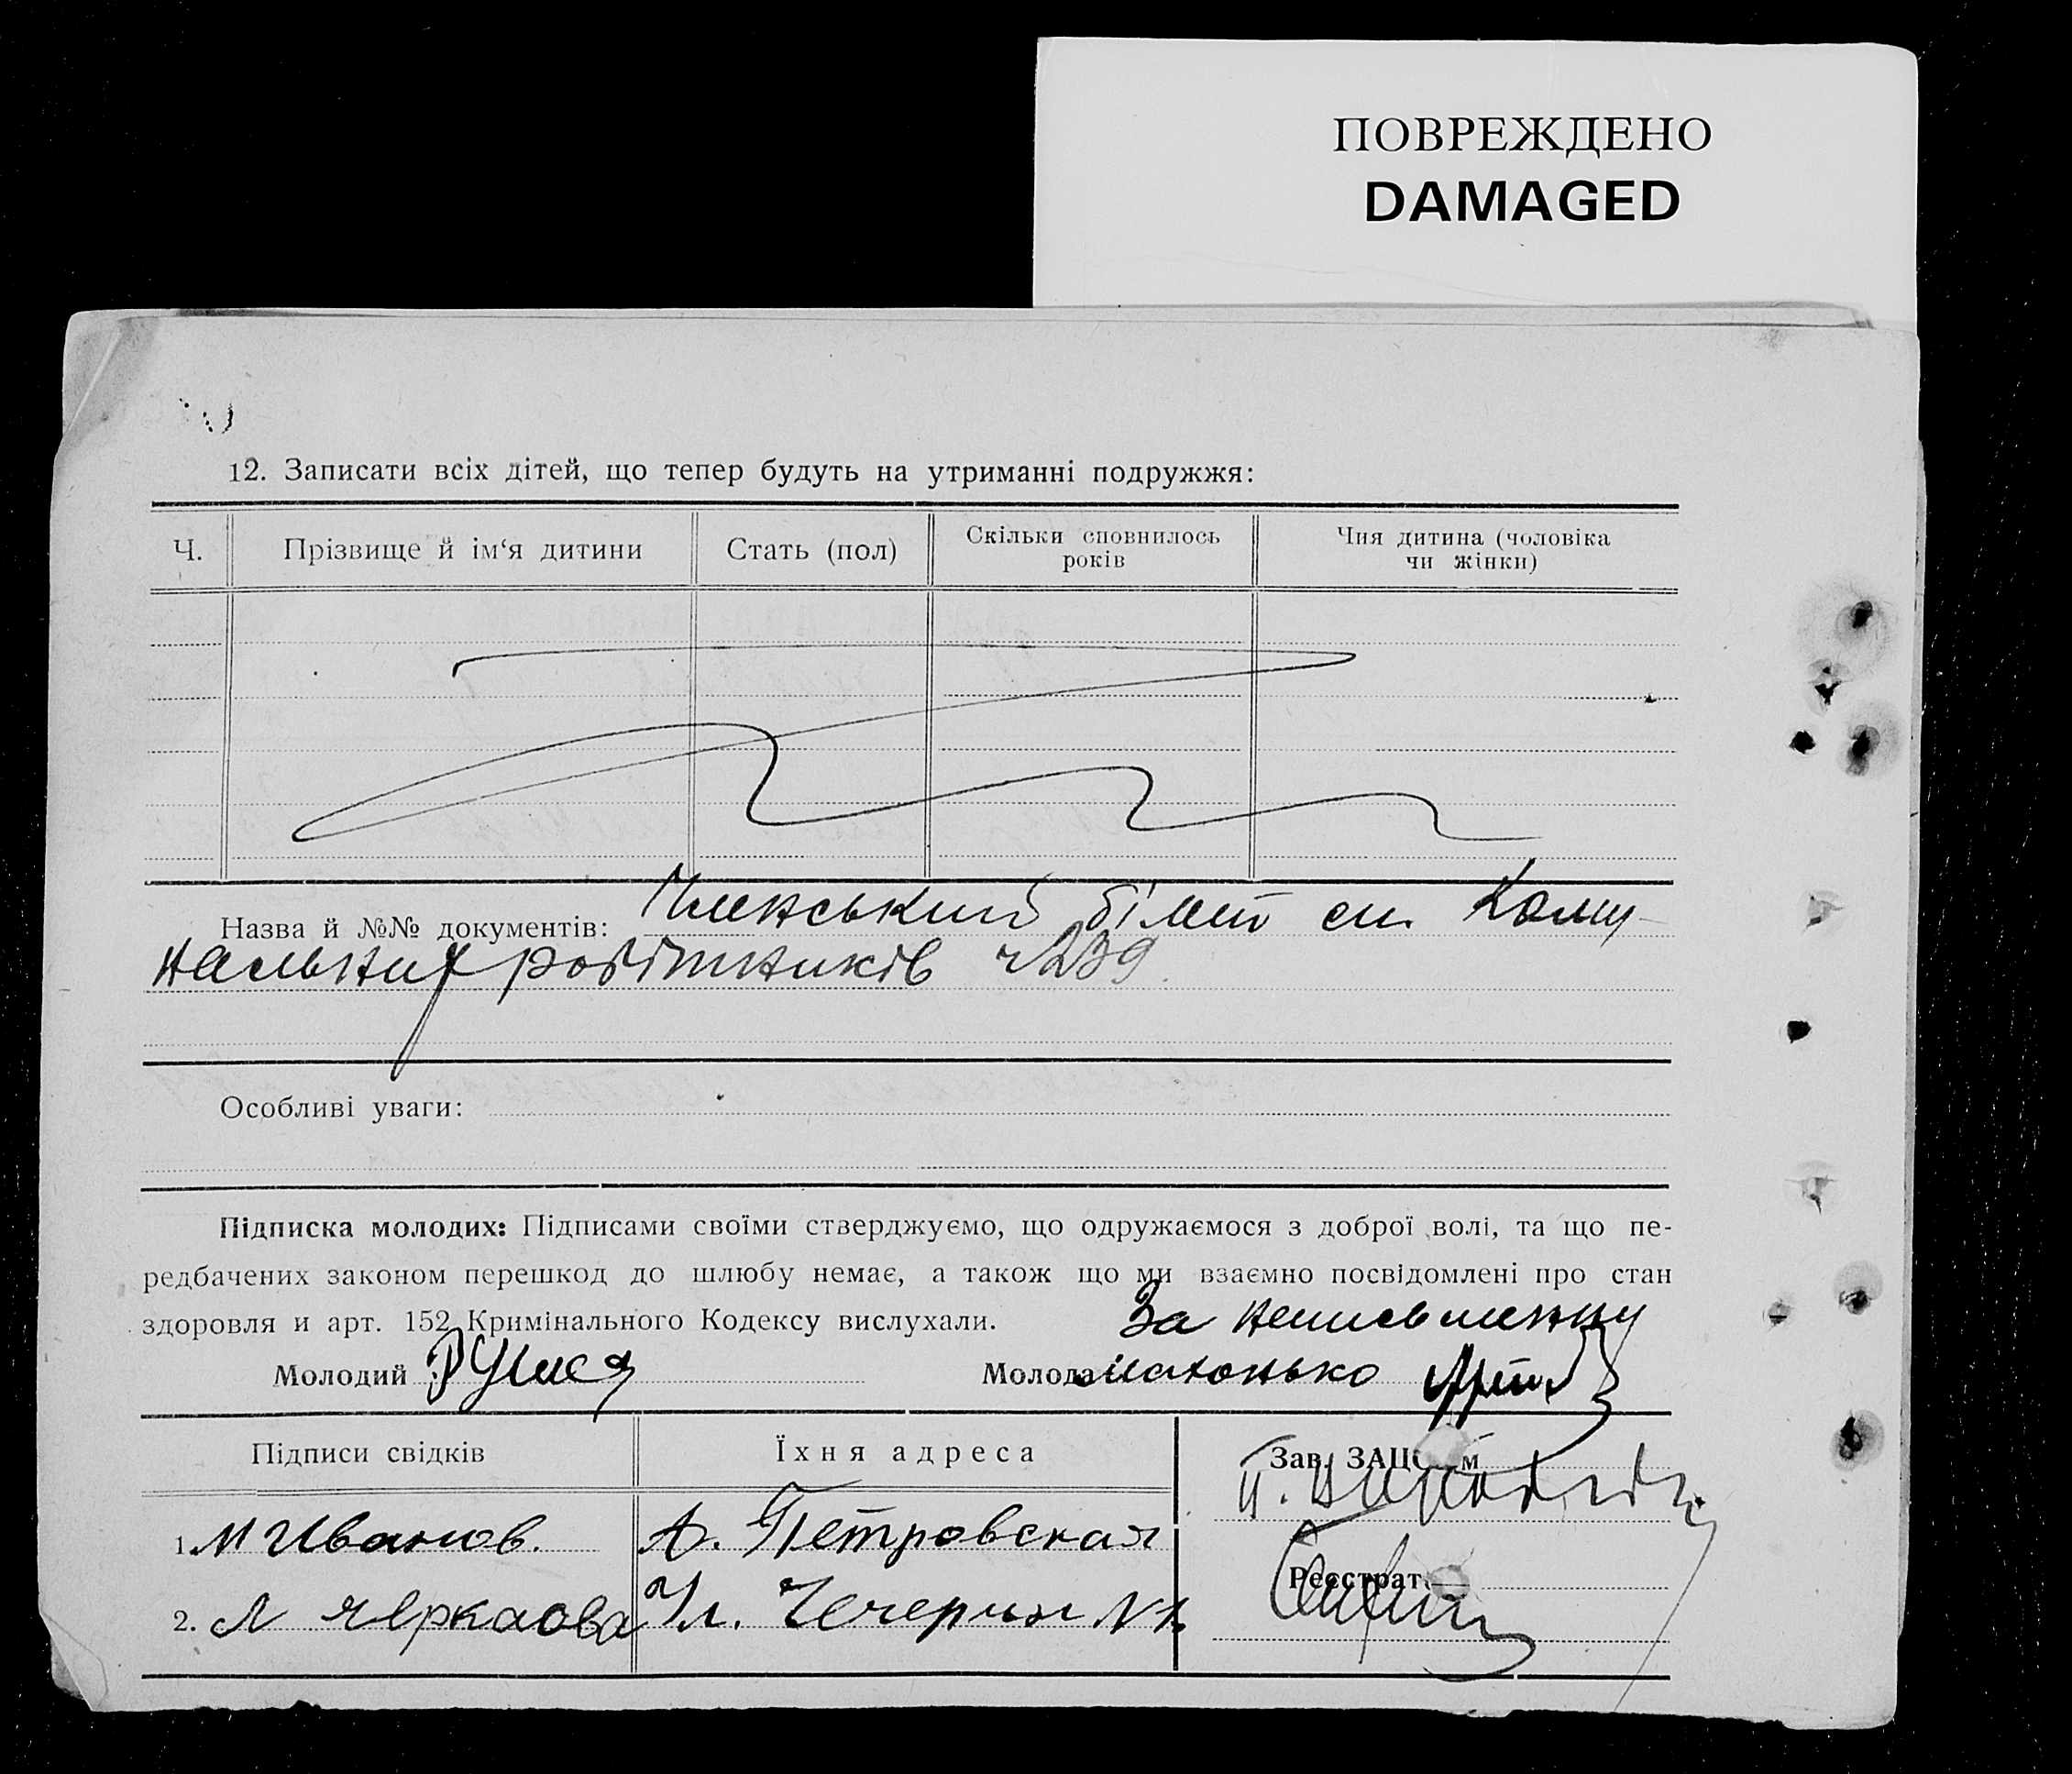 ПОВРЕЖДЕНО
DAMAGED
12. Записати всіх дітей, що тепер будуть на утриманні подружжя:
Ч. Прізвище й ім‘я дитини Стать (пол) Скільки сповнилось років Чия дитина (чоловіка чи жінки)
Назва й №№ документів: Членський білет сп. Кому-
нальних робітників ч 239
Особливі уваги:
Підписка молодих: Підписами своїми стверджуємо, що одружаємося з доброї волі, та що пе-
редбачених законом перешкод до шлюбу немає, а також що ми взаємно посвідомлені про стан
здоровля и арт. 152 Кримінального Кодексу вислухали. За неписьменну
Молодий Молода
Підписи свідків Їхня адреса Зав. ЗАЦ
1. М Иванов. Петровская
Реєстрат
2. Л Ул. Чечерин